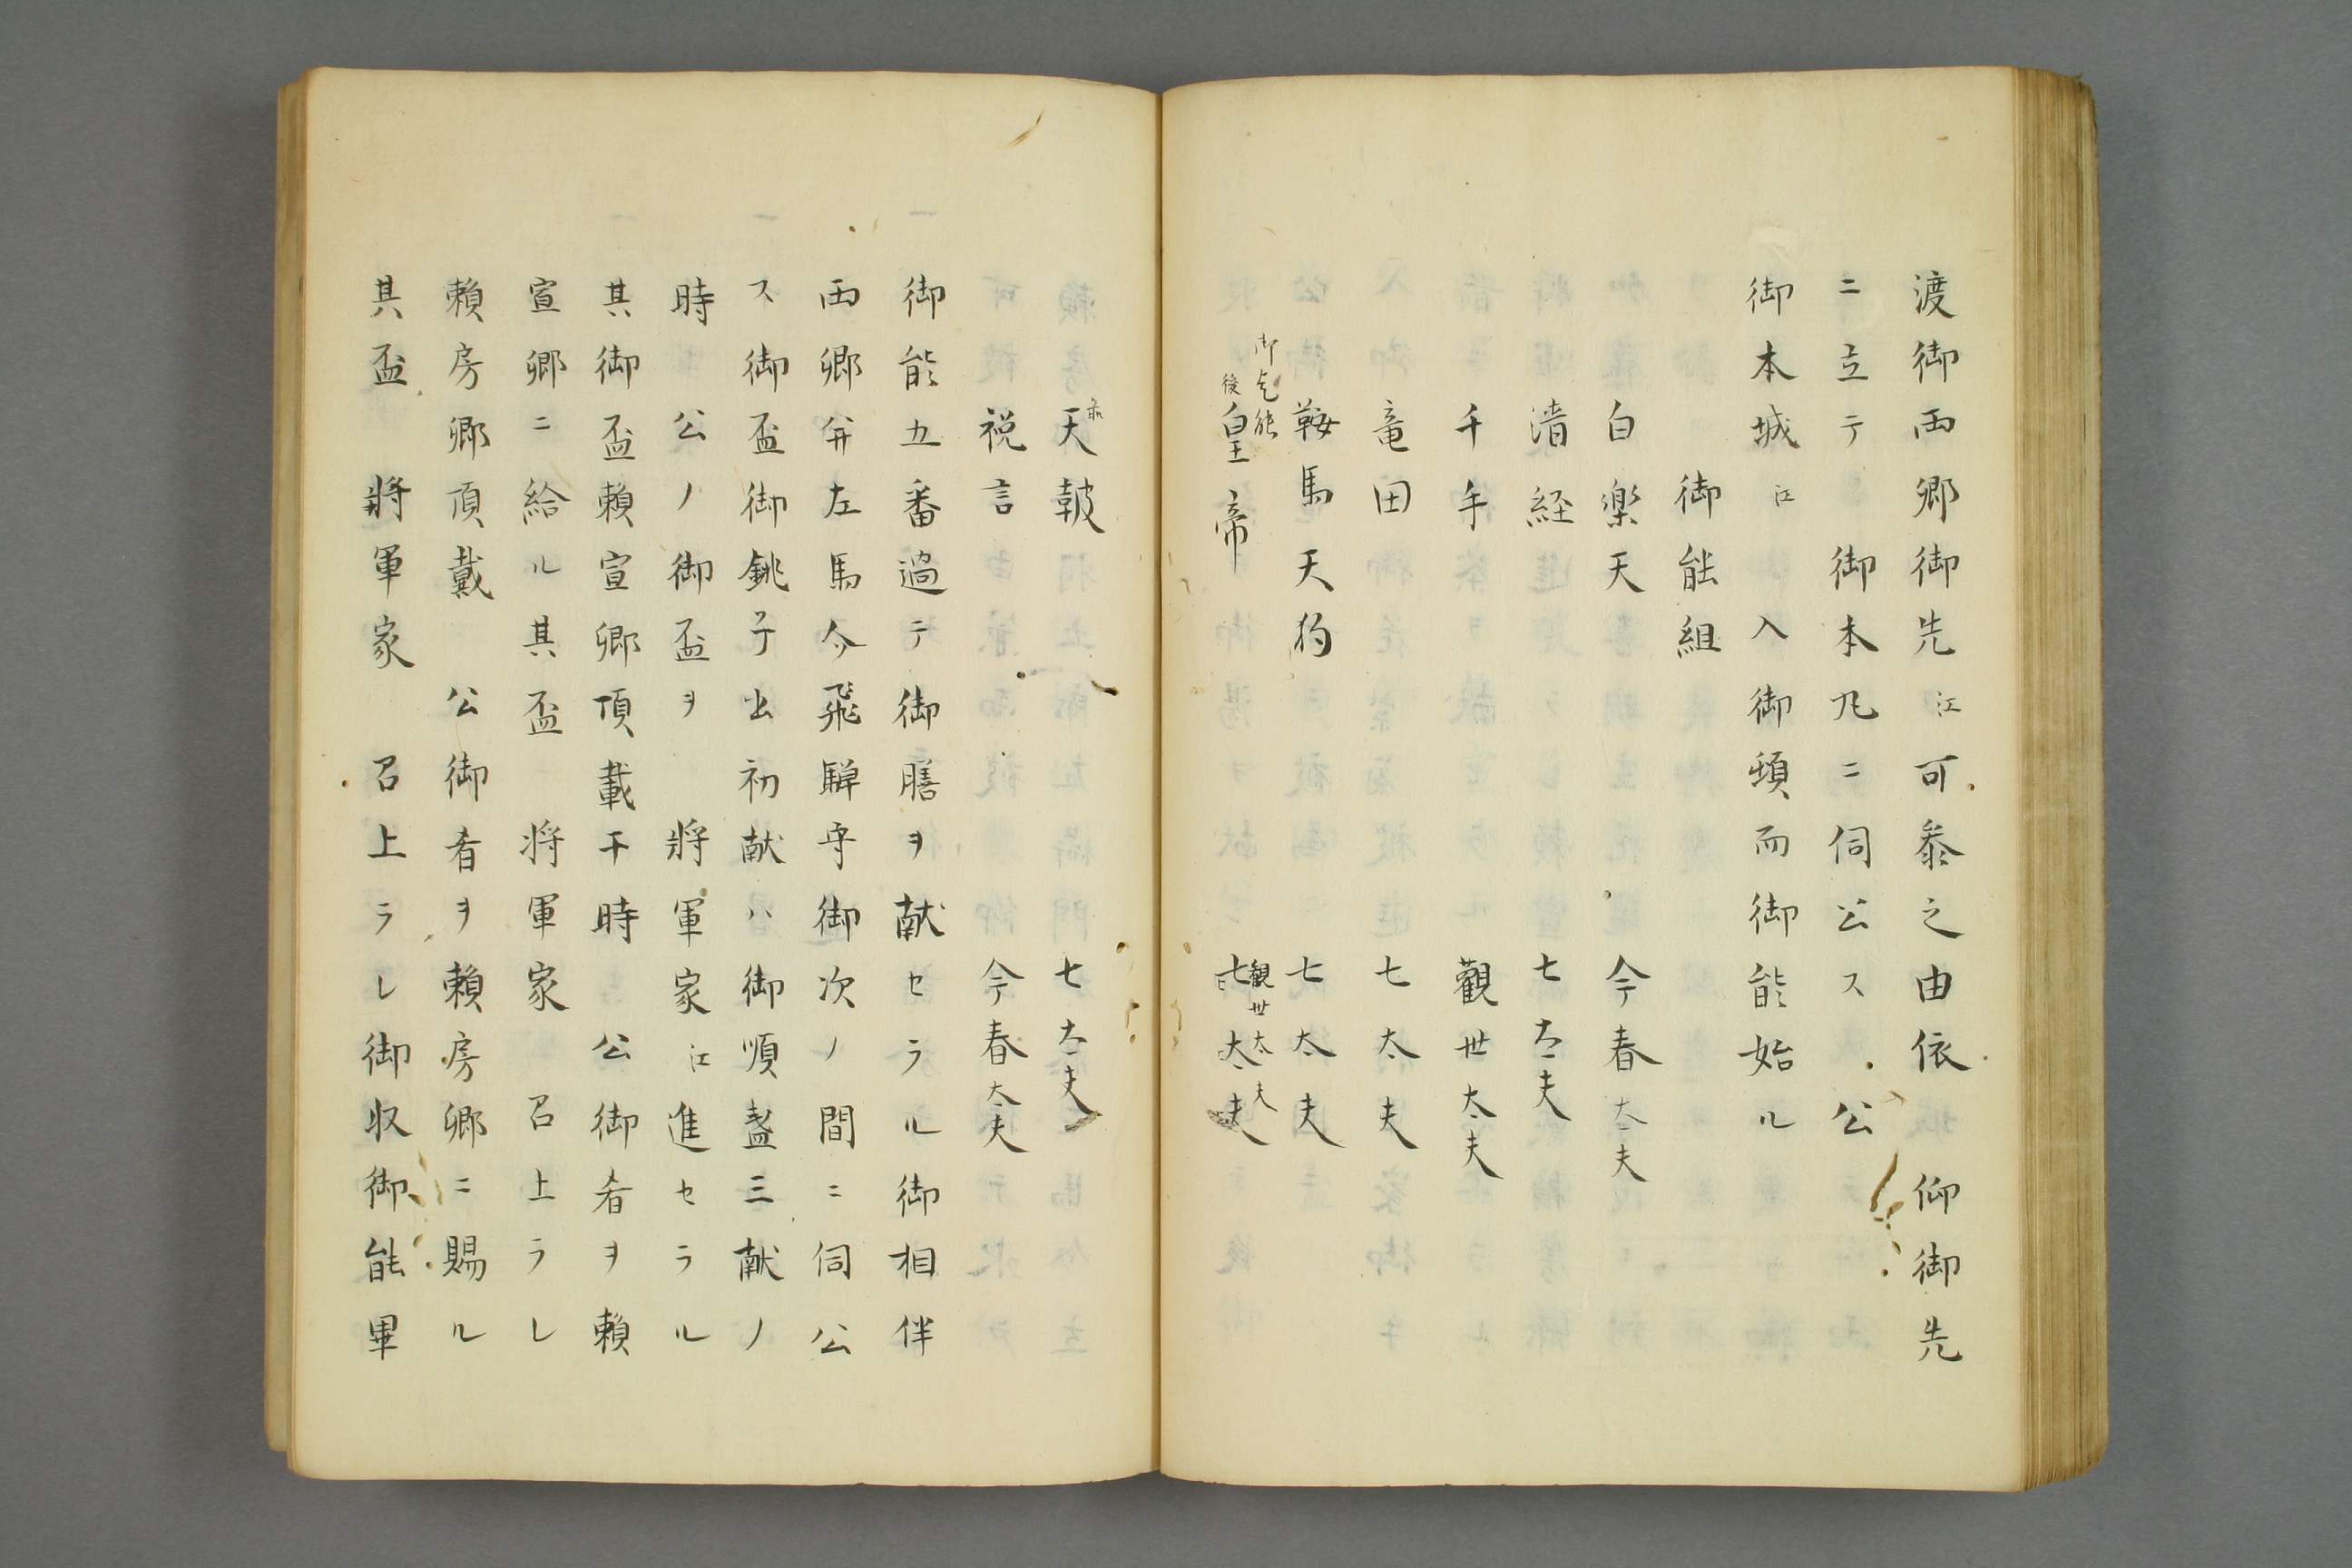 渡御両郷御先江可参之由依　仰御先
ニ立テ　　御本丸ニ伺公ス　　公
御本城江　入御頓而御能始ル
御能組
白楽天　今春太夫
清経　七太夫
千手　観世太夫
竜田　七太夫
鞍馬天狗　七太夫
御乞能　観世太夫
後皇帝　七太夫
天鼓　七太夫
祝言　今春太夫
御能五番過テ御膳ヲ献セラル御相伴
両卿并左馬介飛騨守御次ノ間ニ伺公
ス御盃御銚子出初献ハ御順盞三献ノ
時　公ノ御盃ヲ　将軍家江進セラル
其御盃頼宣卿頂戴于時　公御肴ヲ頼
宣卿ニ給ル其盃　将軍家　召上ラレ
頼房卿頂戴　公御肴ヲ頼房卿ニ賜ル
其盃　将軍家　召上ラレ御収御能畢